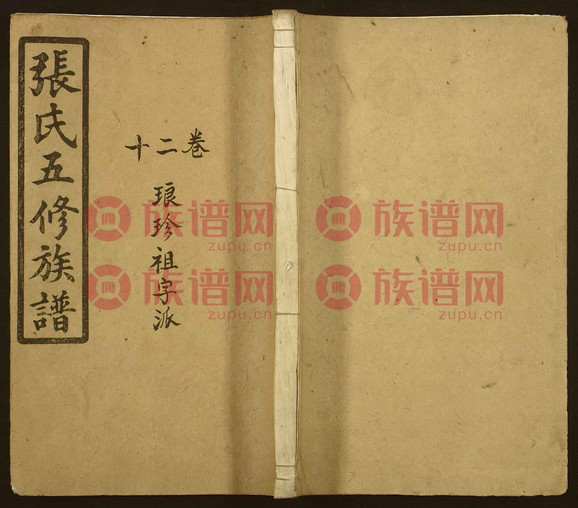 張氏五修族譜
卷二十
琅珍祖字派
族谱网
zupu.cn
族谱网
zupu.cn
族谱网
zupu.cn
族谱网
zupu.cn